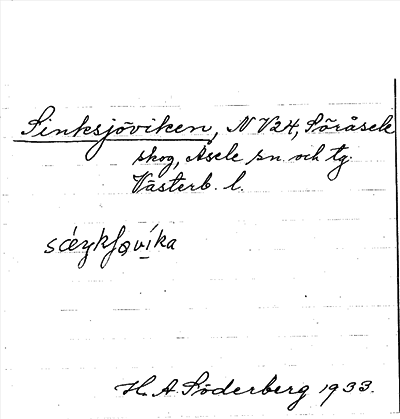 Sinksjöviken, N V24, Söråsele
skog, Åsele sn. och tg.
Västerb. l.
H. A. Söderberg 1933.